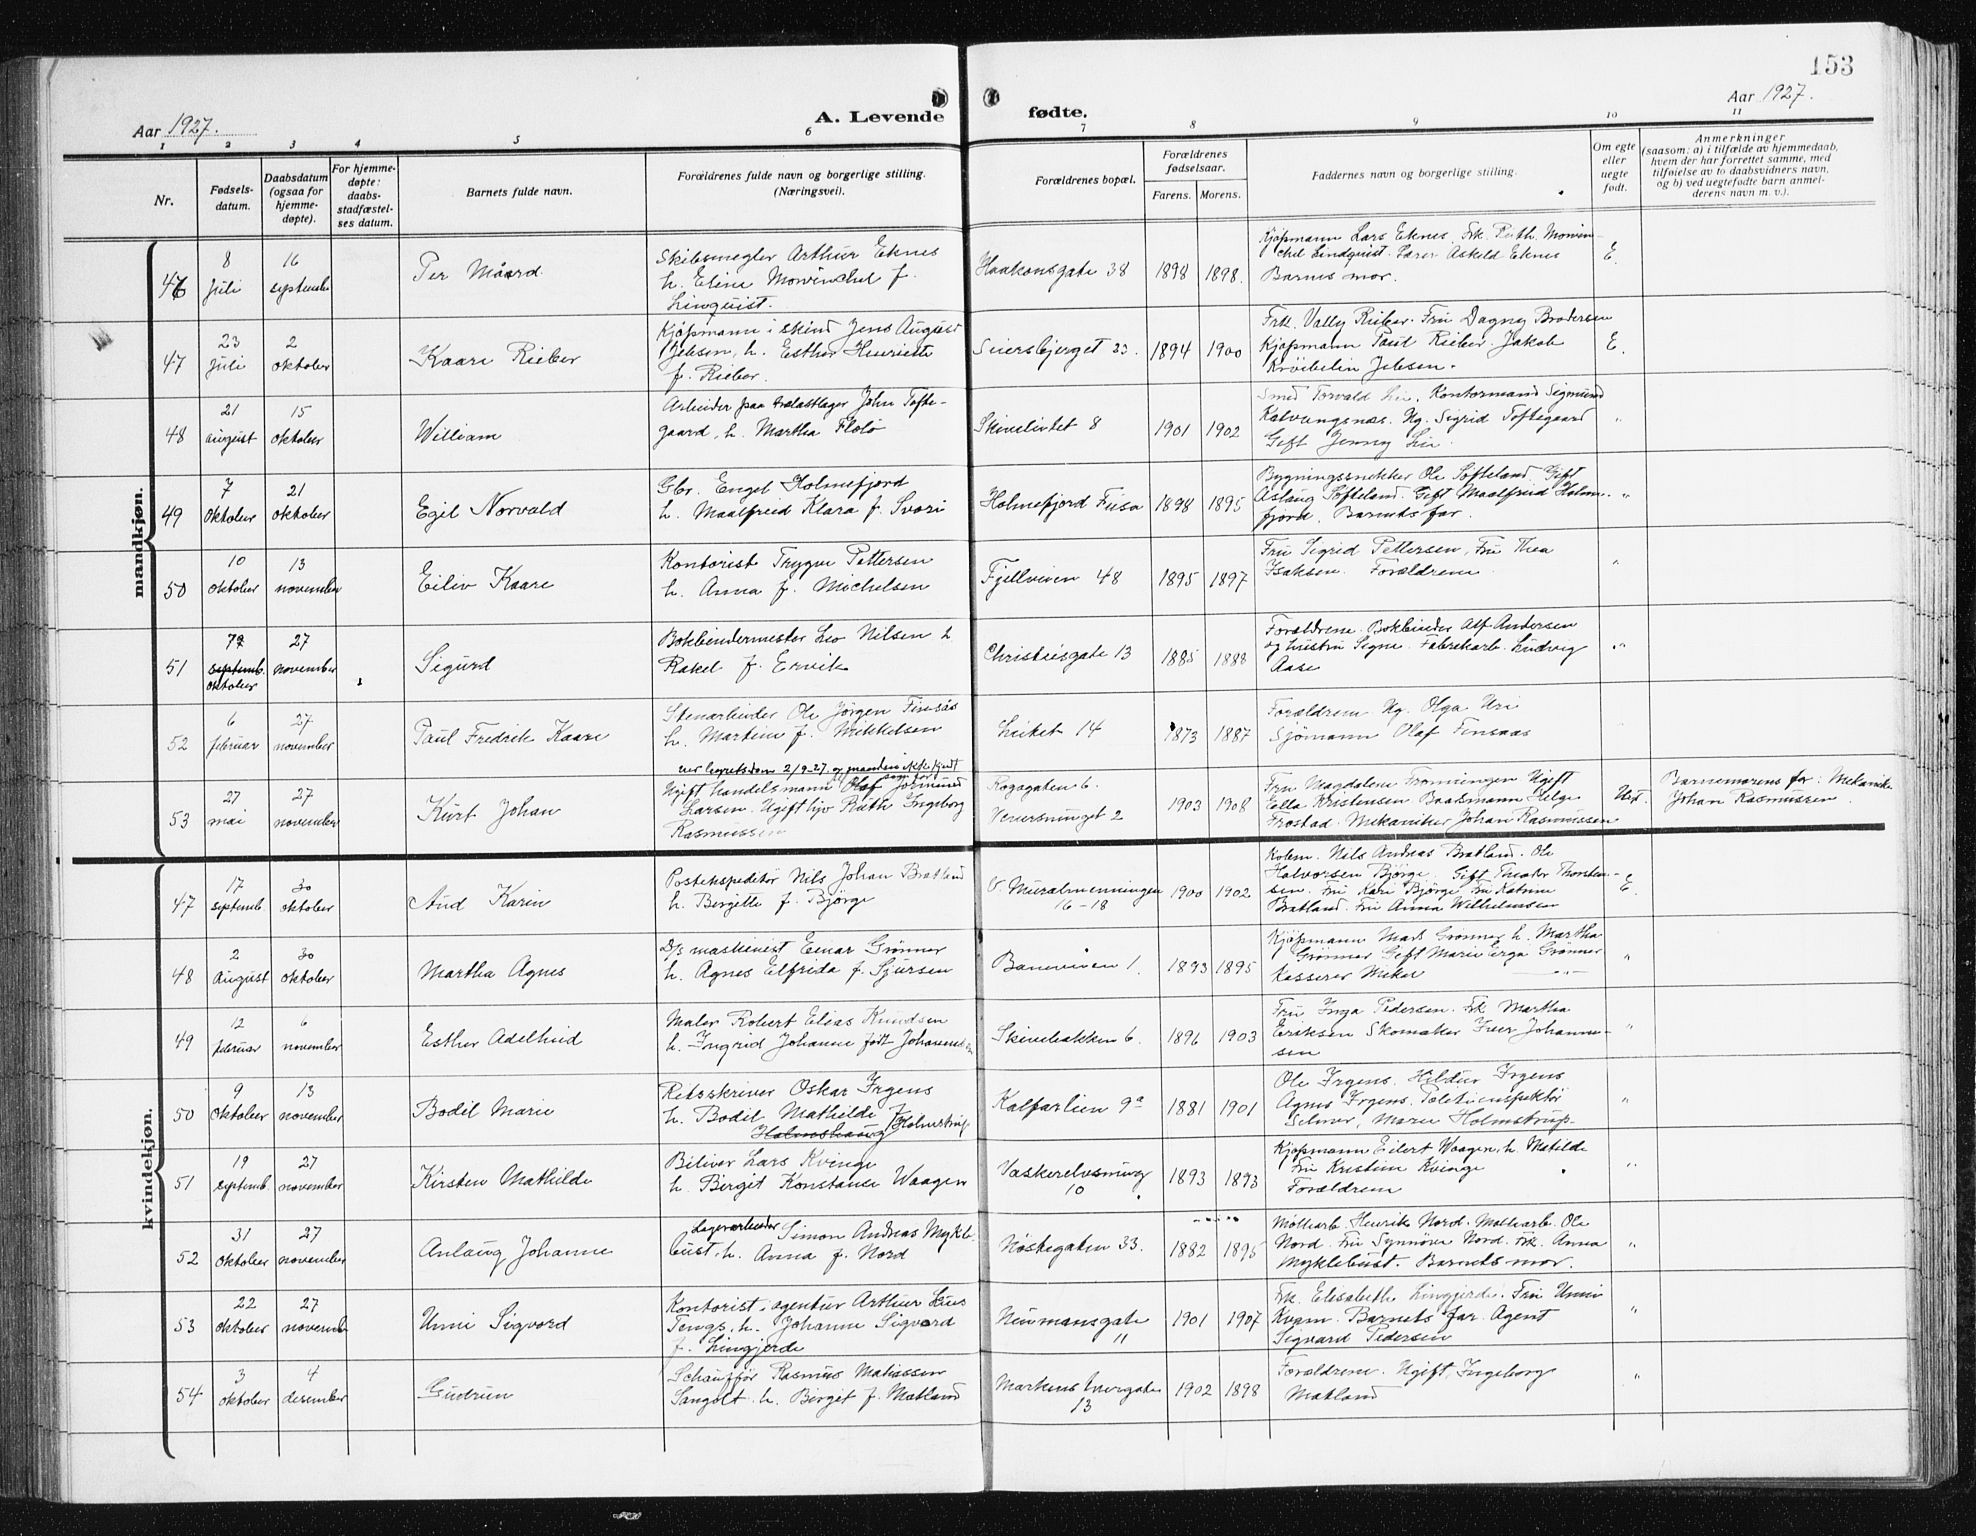 153
Aar 1927.
A. Levende fødte.
Aar 1927.
1 2 3 4 5 6 7 8 9 10 11
Nr.
Fødsels-
datum.
Daabsdatum
(ogsaa for
hjemme-
døpte).
For hjemme-
døpte:
daabs-
stadfæstel-
ses datum.
Barnets fulde navn.
Forældrenes fulde navn og borgerlige stilling.
(Næringsvei).
Forældrenes bopæl.
Forældrenes
fødselsaar.
Farens. Morens.
Faddernes navn og borgerlige stilling.
Om egte
eller
uegte
født.
Anmerkninger
(saasom: a) i tilfælde av hjemmedaab,
hvem der har forrettet samme, med
tilføielse av to daabsvidners navn,
og b) ved uegtefødte barn anmel-
derens navn m. v.).
mandkjøn.
46
8 juli
16 september
Per Maard
Skibsmegler Arthur Eknes
h. Eline Mowinckel f.
Linquist.
Haakonsgate 38
1898 1898.
Kjøpmann Lars Eknes. Frk. Ruth Mowin-
ckel Lindquist. Lærer Askild Eknes
Barnets mor.
E.
47
23 juli
2 oktober
Kaare Rieber
Kjøpmann i skind Jens August
Jebsen, h. Esther Henriette
f. Rieber.
Seiersbjerget 23.
1894 1900
Frk. Vally Rieber. Fru Dagny Brodersen
Kjøpmann Paul Rieber. Jakob
Jebsen.
E.
48
21 august
15 oktober
William
Arbeider paa trælastlager John Tofte-
gaard, h. Martha Flolo
Skivelivtet 8
1901 1902
Smed Torvald Lie. Kontormand Sigmund
Kalvangsnæs. Ug. Sigrid Toftegaard
Gift Jenny Lie.
"
49
7 oktober
21 oktober
Egil Norvald
Gbr. Engel Holmefjord
h. Maalfrid Klara f. Svori
Holmefjord Fusa
1898 1895
Bygningssnekker Ole Softeland. Gift
Aslaug Softeland. Gift Maalfrid Holme-
fjord. Barnets far.
"
50
10 oktober
13 november
Eiliv Kaare
Kontorist Trygve Pettersen
h. Anna f. Michelsen
Fjellveien 48
1895 1897
Fru Sigrid Pettersen, Fru Thea
Isaksen. Forældrene.
"
51
7 septemb.
oktober
27 november
Sigurd
Bokbindermester Leo Nilsen h.
Rakel f. Ervik
Christiesgate 13
1885 1888
Forældrene. Bokbinder Alf Andersen
og hustru Signe. Fabrikarb. Ludvig
Aase
"
52
6 februar
27 november
Paul Fredrik Kaare
Stenarbeider Ole Jørgen Finsås
h. Martine f. Mikkelsen
14
1873 1887
Forældrene Ug. Olga Uri
Sjømann Olaf Finsaas
53
27 mai
27 november
Kurt Johan
2/9-27
Ugift handelsmann Olaf Jørmund
Larsen. Ugift hjv. Ruth Ingeborg
Rasmussen
Rogagaten 6.
2
1903 1908
Fru Magdalene Fronningen Ugift
Ella Kristensen Baatsmann Helge
Frostad. Mekaniker Johan Rasmussen
Uef.
Barnemorens far: Mekanike
Johan Rasmussen
kvindekjøn.
47
17 septemb.
30 oktober
Aud Karin
Postekspeditør Nils Johan Bratland
h. Bergitte f. Bjørge
Ø. Muralmenningen
16-18
1900 1902
Kolon. Nils Andreas Bratland. Ole
Halvorsen Bjørge. Gift Theodor Thorsten-
sen. Fru Kari Bjørge Fru Katrine
Bratland. Fru Anna Wilhelmsen
E.
48
2 August
30 oktober
Martha Agnes
D/s maskinist Einar Grønner
h. Agnes Elfrida f. Sjursen
Baneveien 1.
1893 1895
Kjøpmann Mads Grønner h. Martha
Grønner Gift Marie Erga Grønner
Kasserer Mikal —"—
"
49
12 februar
6 november
Esther Adelheid
Maler Robert Elias Knudsen
h. Ingrid Johanne født Johannesen
Skivebakken 6.
1896 1903
Fru Inga Pedersen. Frk Martha
Eriksen Skomaker Iver Johanne-
sen
"
50
9 oktober
13 november
Bodil Marie
Retsskriver Oskar Irgens
h. Bodil Mathilde f.
Holmstrup
Kalfarlien 9a
1881 1901
Ole Irgens. Hildur Irgens
Agnes Irgens. Politiinspektør
Selmer, Marie Holmstrup.
"
51
19 septemb.
27 november
Kirsten Mathilde
Bileier Lars Kvinge
h. Birgit Konstanse Waagen
Vaskerelvsmug
10
1893 1893
Kjøpmann Eilert Waagen, h. Matilde
Fru Kristine Kvinge
Forældrene
"
52
31 oktober
27 november
Anlaug Johanne
Lagerarbeider Simon Andreas Mykle-
bust, h. Anna f. Nord
Nøstegaten 33.
1882 1895
Møllearb. Henrik Nord. Møllearb. Ole
Nord. Fru Synnøve Nord. Frk. Anna
Myklebust. Barnets mor.
"
53
22 oktober
27 november
Unni Sigvord
Kontorist i agentur Arthur Lius
Tengs, h. Johanne Sigvord
f. Lingjerde
Neumansgate
11
1901 1907
Frk. Elisabeth Lingjerde. Fru Unni
Kvam. Barnets far. Agent
Sigvard Pedersen
"
54
3 oktober
4 desember
Gudrun
Schauffør Rasmus Matiassen
Sangolt. h. Birgit f. Matland
Markens Tvergate
13
1902 1898
Forældrene. Ugift, Ingeborg
Matland
"